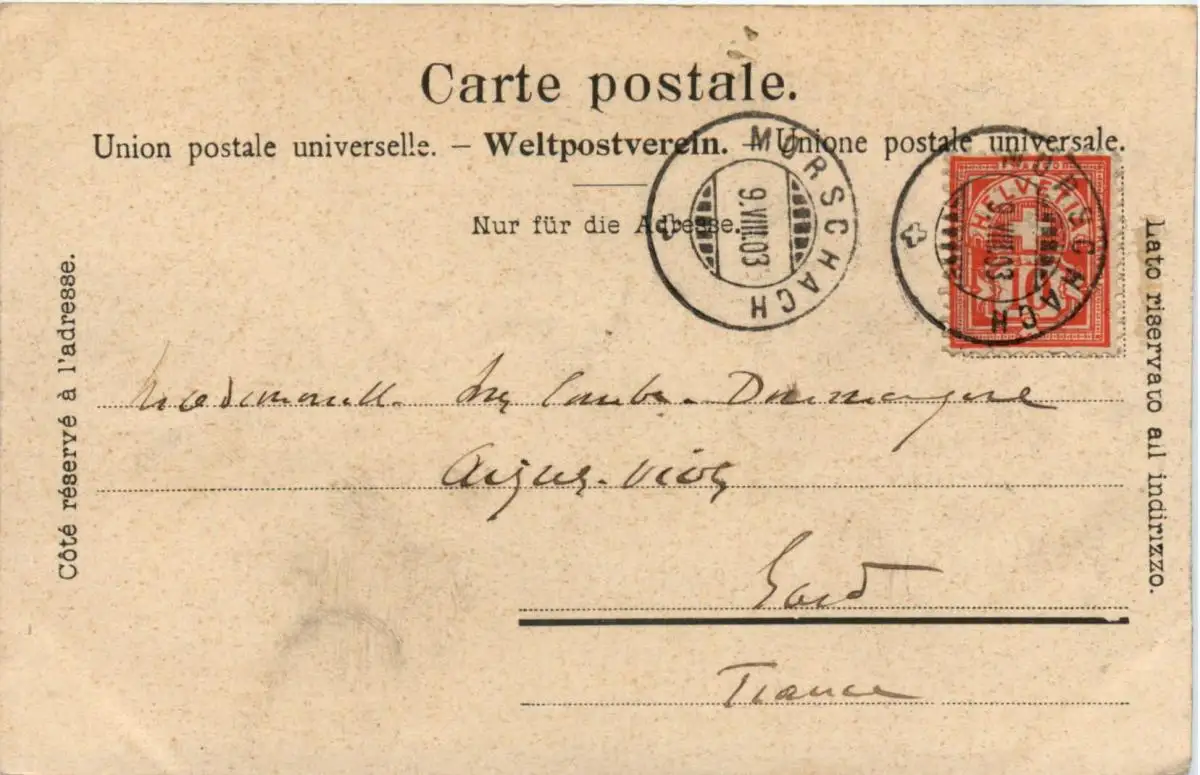 Carte postale.
Union postale universelle. – Weltpostverein. – Unione postale universale.
Nur für die Adresse.
MORSCHACH
9.VIII.03
MORSCHACH
9.VIII.03
HELVETIA
10
Côté réservé à l'adresse.
Lato riservato all indirizzo.
Mademoiselle
Aigues-Vives
Gard
France